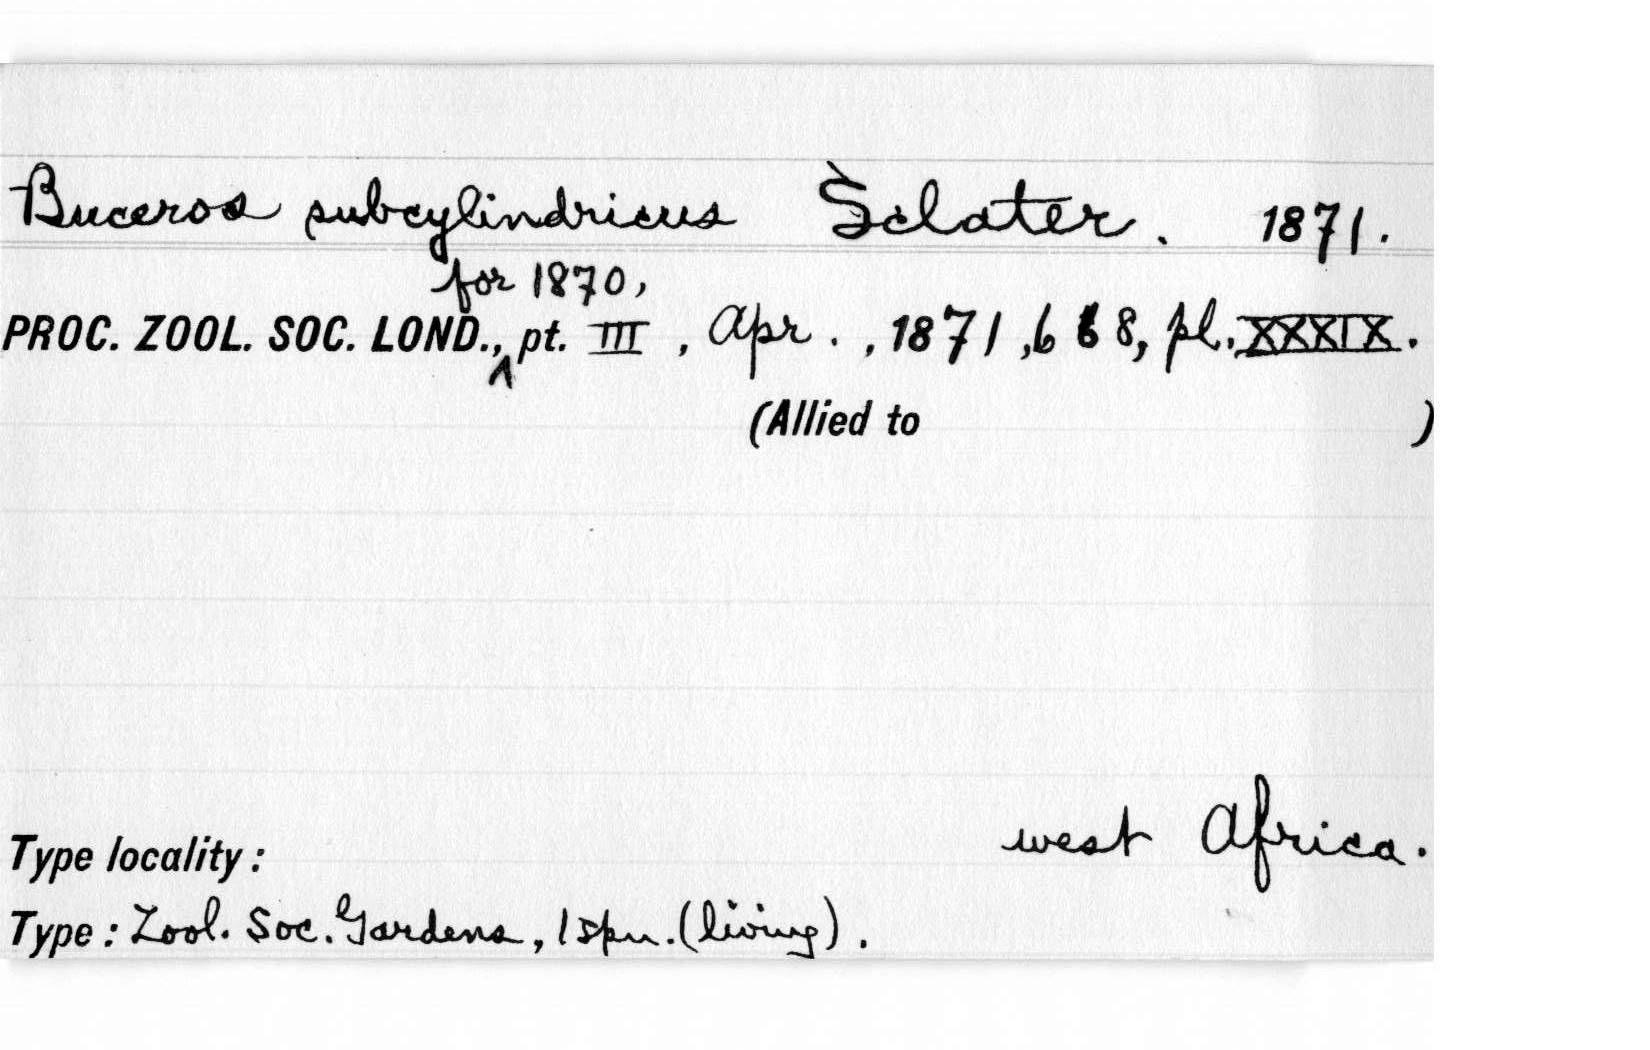 Buceros subcylindricus Sclater. 1871.
for 1870,
PROC. ZOOL. SOC. LOND., ^ pt. III, Apr., 1871, 668, pl. XXXIX.
(Allied to )
Type locality: west Africa.
Type: Zool. Soc. Gardens, 1 spn. (living).